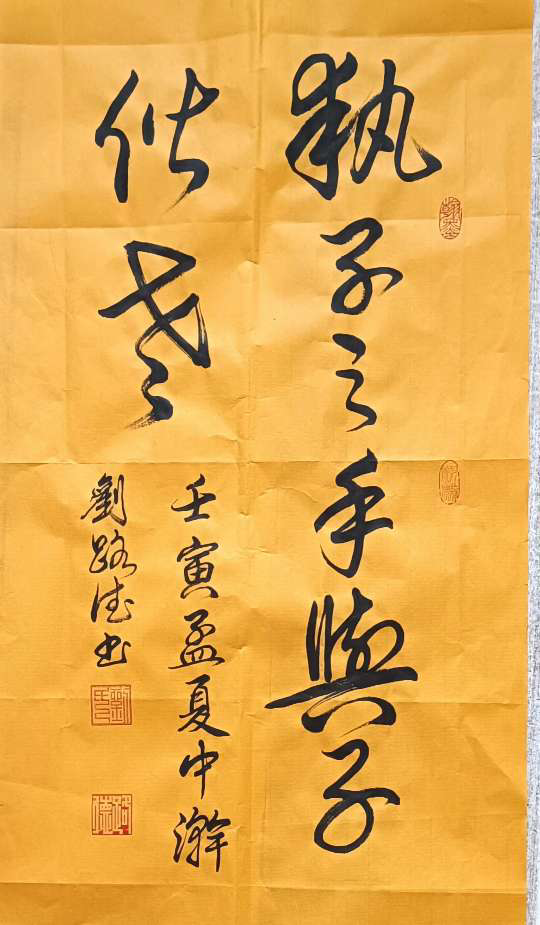 執子之手與子
偕老
壬寅孟夏中澣
劉路德书
路德